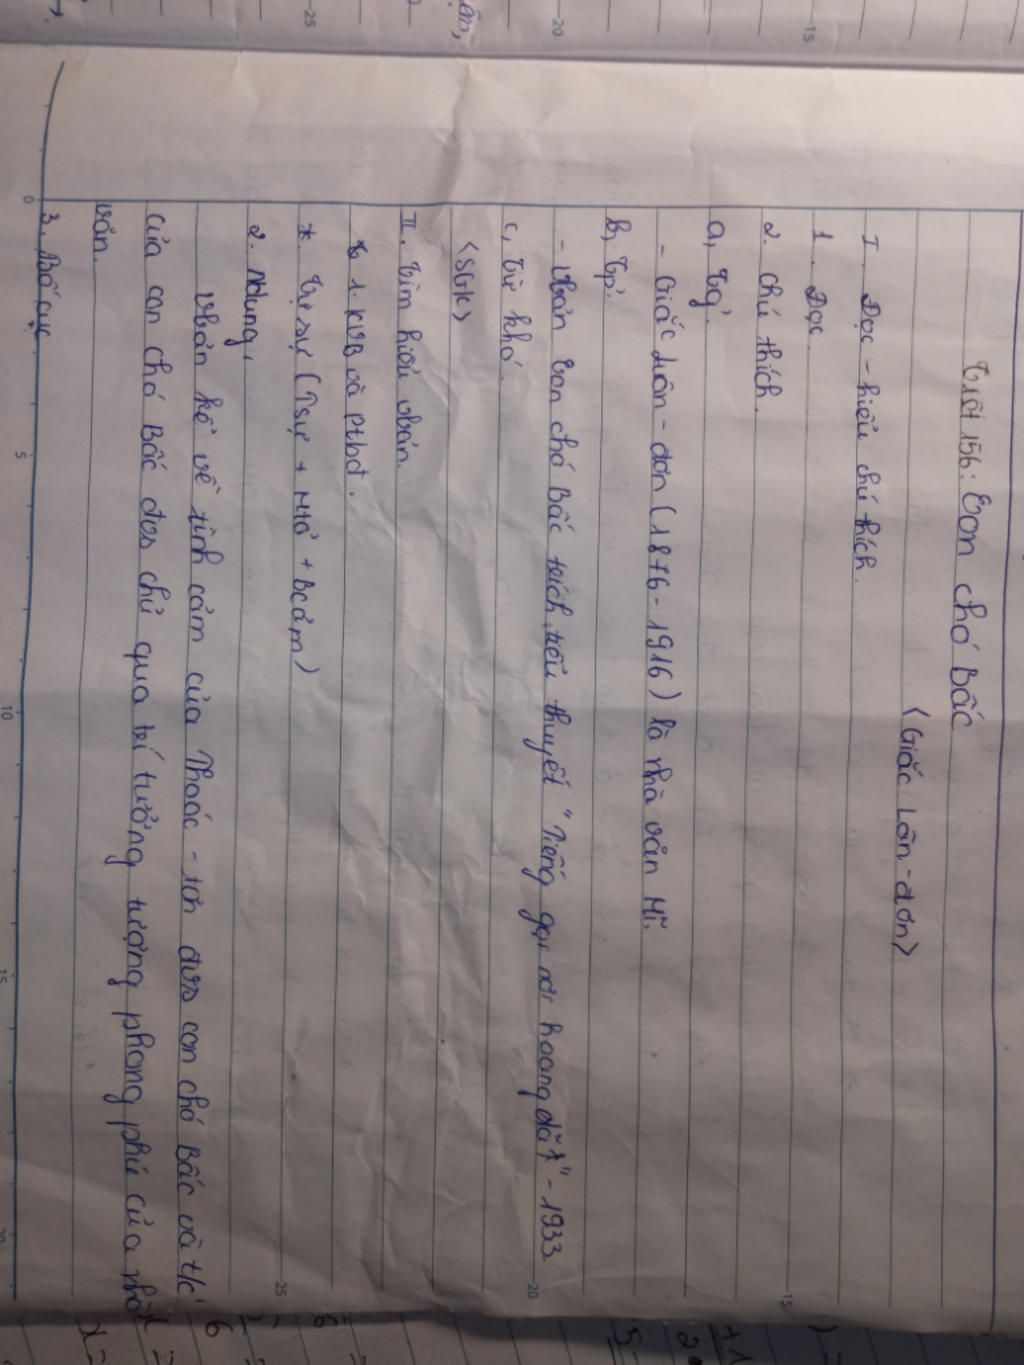 Tiết 156: Con chó Bấc
(Giắc Lân-đơn)
I. Đọc - hiểu chú thích.
1. Đọc.
2. Chú thích.
a, Tg'.
- Giắc Lân-đơn (1876-1916) là nhà văn Mĩ.
b, Tp'.
- Vbản Con chó Bấc trích tiểu thuyết "Tiếng gọi nơi hoang dã" - 1933.
c, Từ khó.
<SGK>
II. Tìm hiểu vbản.
1. KVB và ptbđ.
* Tự sự (Tsự + Mtả + Bcảm)
2. Ndung,
Vbản kể về tình cảm của Thoóc-tơn đvs con chó Bấc và t/c'
của con chó Bấc đvs chủ qua trí tưởng tượng phong phú của nhà
văn.
3. Bố cục.
0
5
10
15
20
25
20
15
25
20
15